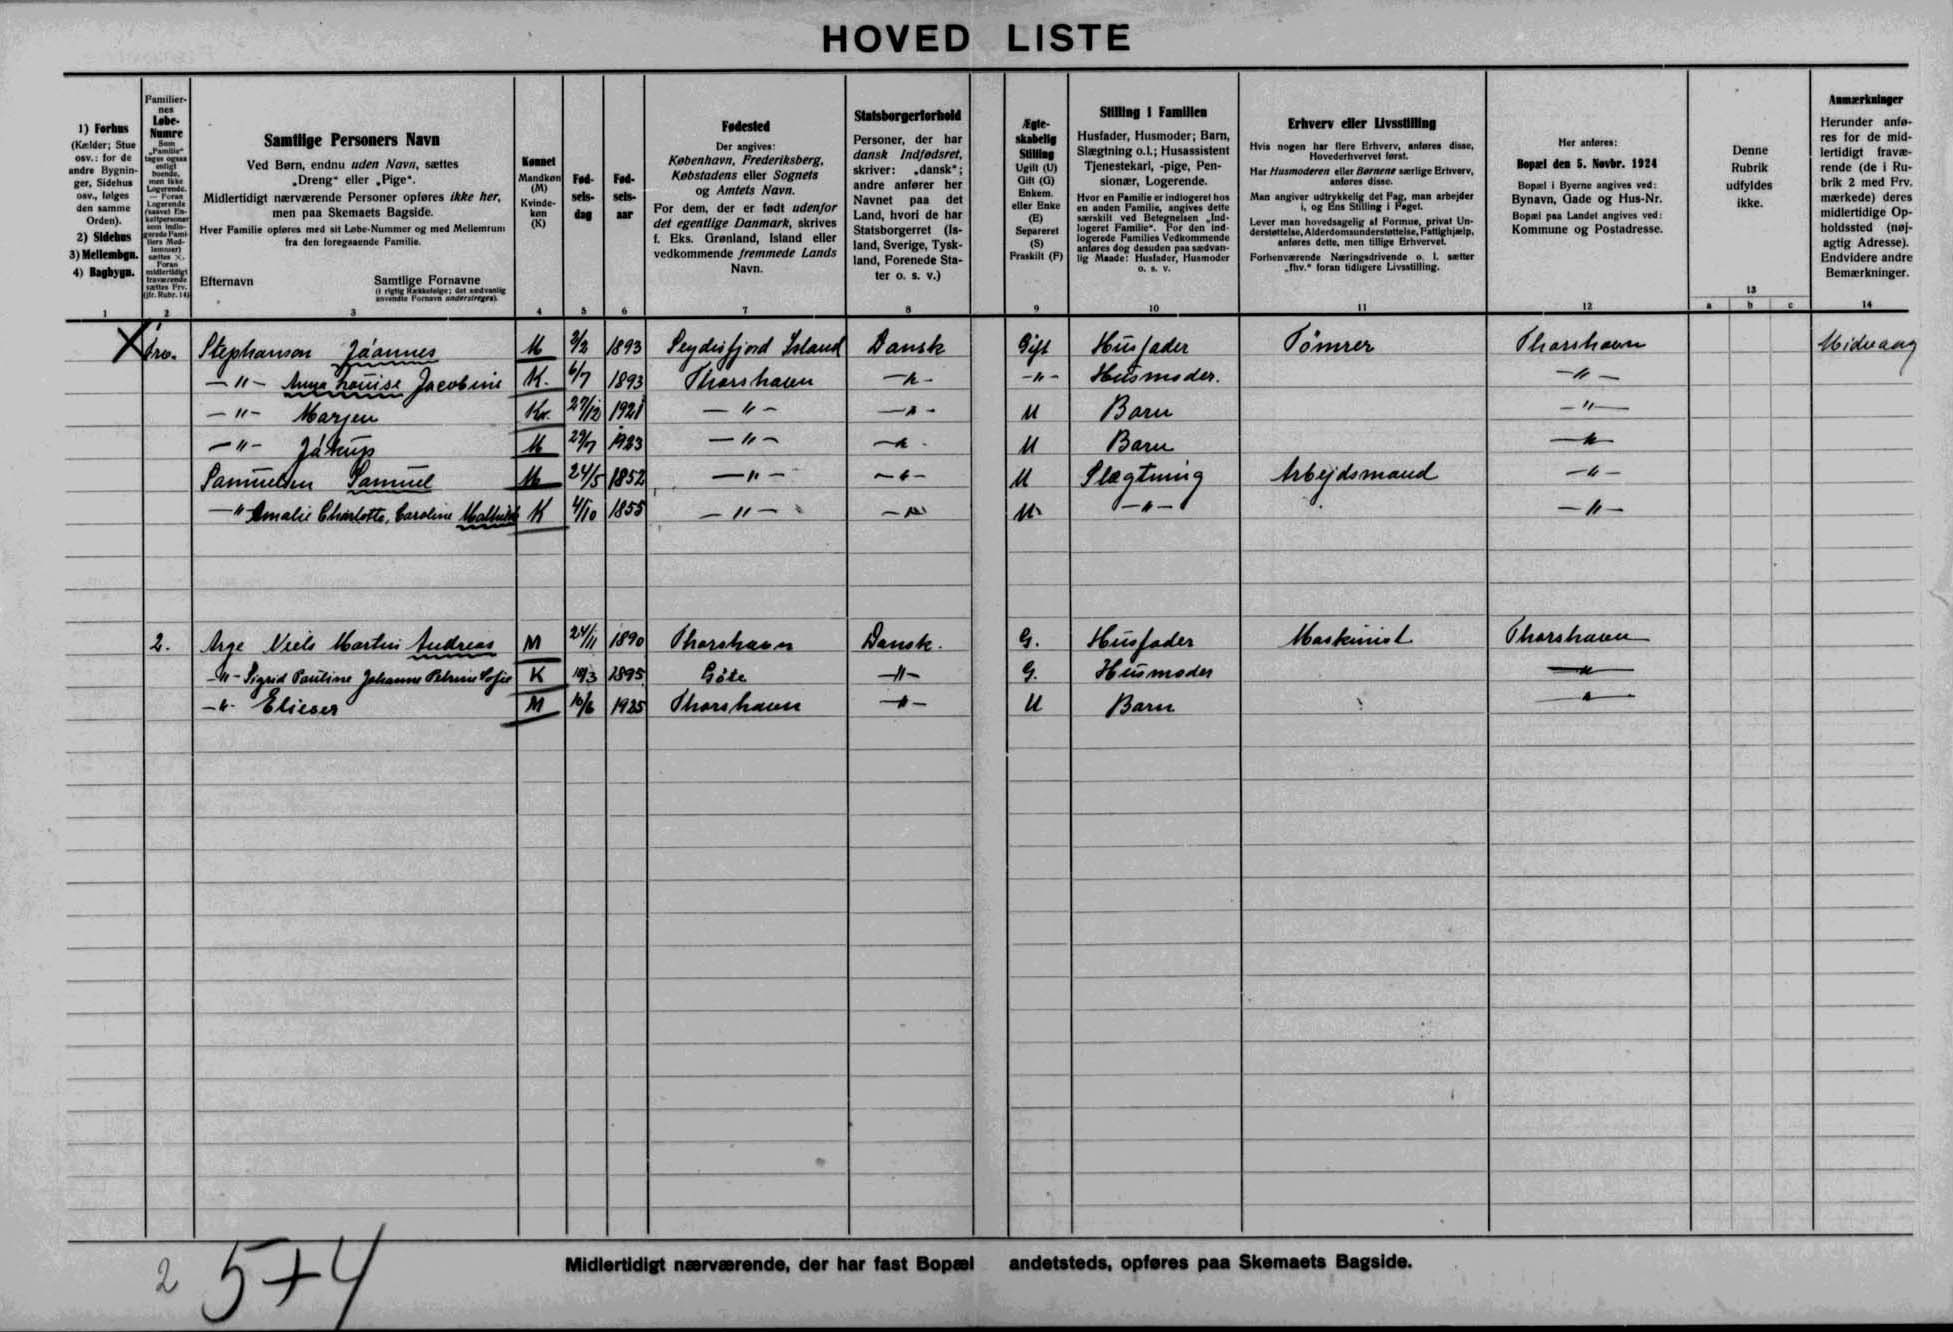 HOVED LISTE
1) Forhus
(Kælder; Stue
osv.: for de
andre Bygnin-
ger, Sidehus
osv., følges
den samme
Orden).
2) Sidehus
3) Mellembgn.
4) Bagbygn.
1
Familier-
nes
Løbe-
Numre
Som
„Familie“
tages ogsaa
enligt
boende,
men ikke
Logerende.
— Foran
Logerende
(saavel En-
keltpersoner
som indlo-
gerede Fami-
liers Med-
lemmer)
sættes ×.
Foran
midlertidigt
fraværende
sættes Frv.
(jfr. Rubr. 14)
2
Samtlige Personers Navn
Ved Børn, endnu uden Navn, sættes
„Dreng“ eller „Pige“.
Midlertidigt nærværende Personer opføres ikke her,
men paa Skemaets Bagside.
Hver Familie opføres med sit Løbe-Nummer og med Mellemrum
fra den foregaaende Familie.
Efternavn Samtlige Fornavne
(i rigtig Rækkefølge; det sædvanlig
anvendte Fornavn understreges).
3
Kønnet
Mandkøn
(M)
Kvinde-
køn
(K)
4
Fød-
sels-
dag
5
Fød-
sels-
aar
6
Fødested
Der angives:
København, Frederiksberg,
Købstadens eller Sognets
og Amtets Navn.
For dem, der er født udenfor
det egentlige Danmark, skrives
f. Eks. Grønland, Island eller
vedkommende fremmede Lands
Navn.
7
Statsborgerforhold
Personer, der har
dansk Indfødsret,
skriver: „dansk“;
andre anfører her
Navnet paa det
Land, hvori de har
Statsborgerret (Is-
land, Sverige, Tysk-
land, Forenede Sta-
ter o. s. v.)
8
Ægte-
skabelig
Stilling
Ugift (U)
Gift (G)
Enkem.
eller Enke
(E)
Separeret
(S)
Fraskilt (F)
9
Stilling i Familien
Husfader, Husmoder; Barn,
Slægtning o.l.; Husassistent
Tjenestekarl, -pige, Pen-
sionær, Logerende.
Hvor en Familie er indlogeret hos
en anden Familie, angives dette
særskilt ved Betegnelsen „Ind-
logeret Familie“. For den ind-
logerede Families Vedkommende
anføres dog desuden paa sædvan-
lig Maade: Husfader, Husmoder
o. s. v.
10
Erhverv eller Livsstilling
Hvis nogen har flere Erhverv, anføres disse,
Hovederhvervet først.
Har Husmoderen eller Børnene særlige Erhverv,
anføres disse.
Man angiver udtrykkelig det Fag, man arbejder
i, og Ens Stilling i Faget.
Lever man hovedsagelig af Formue, privat Un-
derstøttelse, Alderdomsunderstøttelse, Fattighjælp,
anføres dette, men tillige Erhvervet.
Forhenværende Næringsdrivende o. l. sætter
„fhv.“ foran tidligere Livsstilling.
11
Her anføres:
Bopæl den 5. Novbr. 1924
Bopæl i Byerne angives ved:
Bynavn, Gade og Hus-Nr.
Bopæl paa Landet angives ved:
Kommune og Postadresse.
12
Denne
Rubrik
udfyldes
ikke.
13
a b c
Anmærkninger
Herunder anfø-
res for de mid-
lertidigt fravæ-
rende (de i Ru-
brik 2 med Frv.
mærkede) deres
midlertidige Op-
holdssted (nøj-
agtig Adresse).
Endvidere andre
Bemærkninger.
14
X 1 frv. Stephanson Jóannes M 3/2 1893 Seydisfjord Island Dansk Gift Husfader Tømrer Thorshavn Midvaag
—"— Anna Louise Jacobine K. 6/7 1893 Thorshavn —"— —"— Husmoder. —"—
—"— Marjen Kv. 27/12 1921 —"— —"— U Barn —"—
—"— Jákup M 29/7 1923 —"— —"— U Barn —"—
Samuelsen Samuel M 24/5 1852 —"— —"— U Slægtning Arbejdsmand —"—
—"— Amalie Charlotte, Caroline K 4/10 1855 —"— —"— U. —"— —"—
2. Arge Niels Martin Andreas M 24/11 1890 Thorshavn Dansk. G. Husfader Maskinist Thorshavn
—"— Sigrid Pauline Johanne Petrine Sofie K 10/3 1895 Göte —"— G. Husmoder —"—
—"— Elieser M 10/6 1925 Thorshavn —"— U Barn —"—
Midlertidigt nærværende, der har fast Bopæl andetsteds, opføres paa Skemaets Bagside.
2 5+4